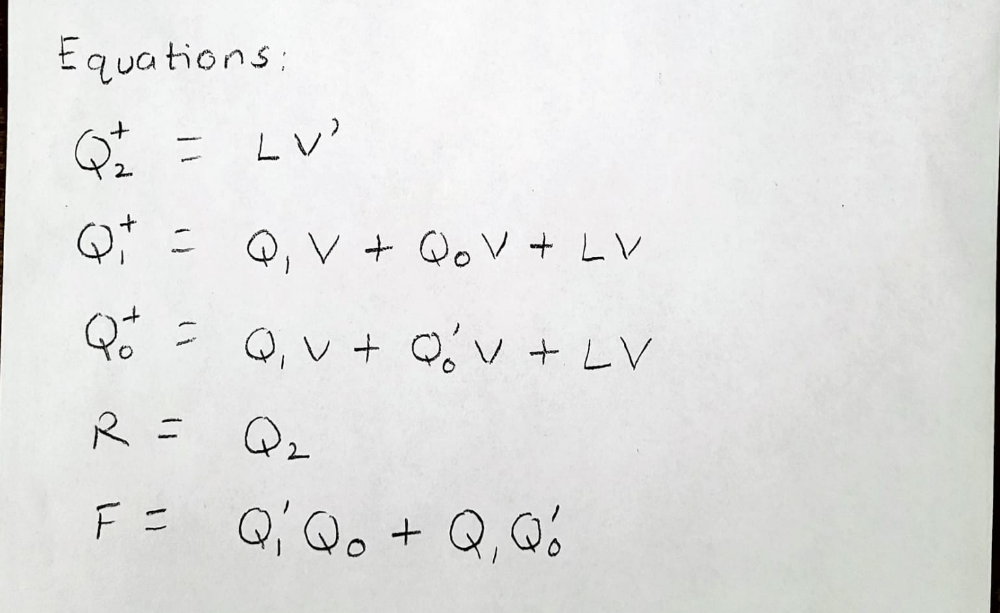 Equations:
Q₂⁺ = LV'
Q₁⁺ = Q₁V + Q₀V + LV
Q₀⁺ = Q₁V + Q₀'V + LV
R = Q₂
F = Q₁'Q₀ + Q₁Q₀'